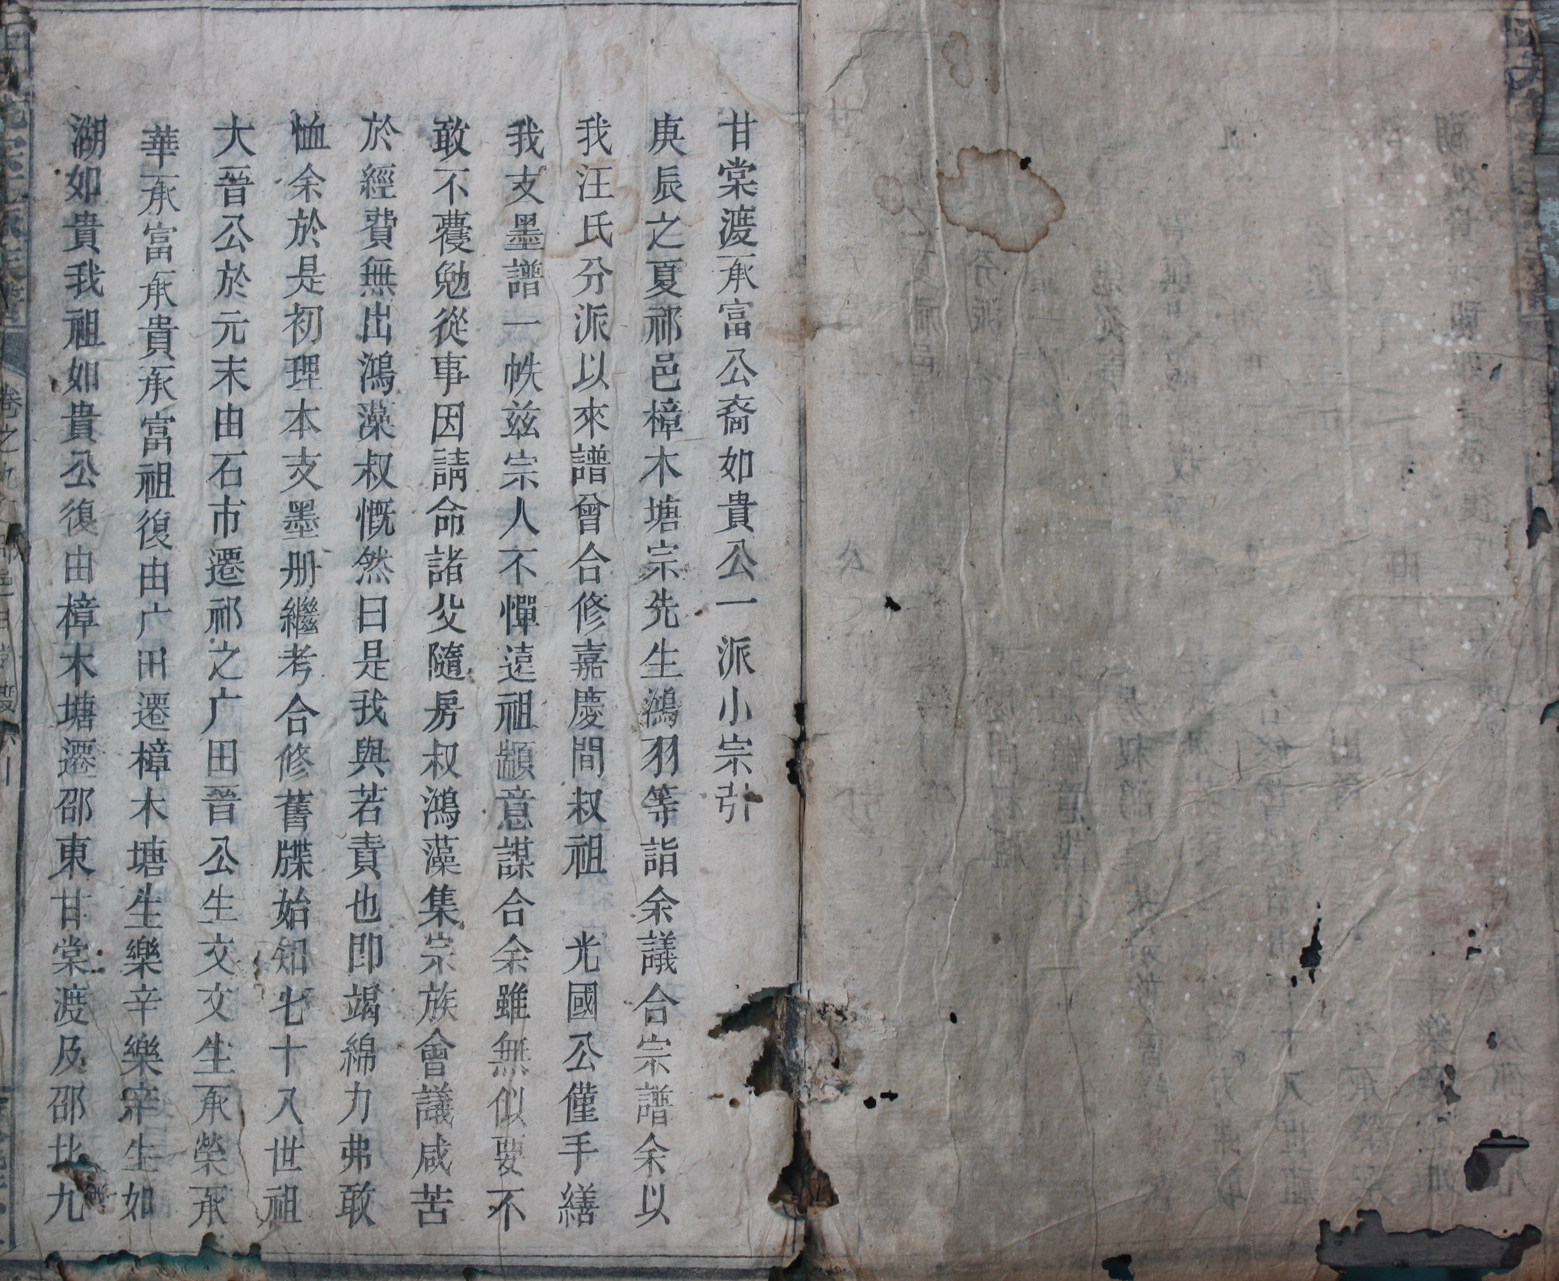 甘棠渡承富公裔如貴公一派小宗引
庚辰之夏祁邑樟木塘宗先生鴻羽等詣余議合宗譜余以
我汪氏分派以來譜曾合修嘉慶間叔祖 光國公僅手繕
我支墨譜一帙兹宗人不憚遠祖顓意謀合余雖無似要不
敢不覆勉從事因請命諸父隨房叔鴻藻集宗族會議咸苦
於經費無出鴻藻叔慨然曰是我與若責也即竭綿力弗敢
恤余於是初理本支墨册繼考合修舊牒始知七十入世祖
大晉公於元末由石市遷祁之广田晉公生交文生承榮承
華承富承貴承富祖復由广田遷樟木塘生樂辛樂宰生如
湖如貴我祖如貴公復由樟木塘遷邵東甘棠渡及邵北九